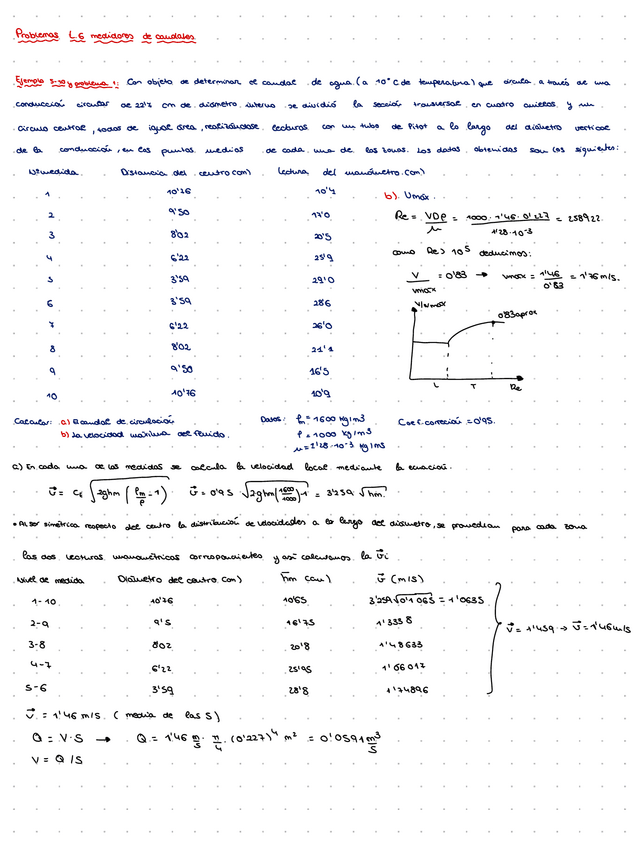 Problemas L6 medidores de caudales
Ejemplo 5-10 y problema 1: Con objeto de determinar el caudal de agua (a 10°C de temperatura) que circula a través de una
conducción circular de 22'7 cm de diámetro interno se dividió la sección transversal en cuatro anillos y un
círculo central, todos de igual área, realizándose lecturas con un tubo de Pitot a lo largo del diámetro vertical
de la conducción, en los puntos medios de cada una de las zonas. Los datos obtenidos son los siguientes:
Nºmedida Distancia del centro (cm) Lectura del manómetro (cm)
1 10'76 10'4
2 9'50 17'0
3 8'02 20'5
4 6'22 25'9
5 3'59 29'0
6 3'59 28'6
7 6'22 26'0
8 8'02 21'1
9 9'50 16'5
10 10'76 10'9
b) Umáx
Re = VDρ/μ = 1000·1'46·0'227 / 1'28·10⁻³ = 258922
como Re > 10⁵ deducimos:
V/vmáx = 0'83 → vmáx = 1'46/0'83 = 1'76 m/s.
V/vmax
0'83 aprox
L T Re
Calcular: a) El caudal de circulación Datos: ρm = 1600 kg/m3 Coef. corrección = 0'95.
b) La velocidad máxima del fluido. ρ = 1000 kg/m3
μ = 1'28·10⁻³ kg/ms
a) En cada una de las medidas se calcula la velocidad local mediante la ecuación:
v = Cf √2ghm (ρm/ρ - 1) v = 0'95 √2ghm(1600/1000)-1 = 3'259 √hm
• Al ser simétrica respecto del centro la distribución de velocidades a lo largo del diámetro, se promedian para cada zona
las dos lecturas manométricas correspondientes y así calculamos la vi
Nivel de medida Diámetro del centro (cm) hm (cm) v (m/s)
1-10 10'76 10'65 3'259√0'1065 = 1'0635
2-9 9'5 16'75 1'3338
3-8 8'02 20'8 1'48633
4-7 6'22 25'95 1'66017
5-6 3'59 28'8 1'74896
v = 1'459 → v = 1'46 m/s
v = 1'46 m/s (media de las 5)
Q = V·S → Q = 1'46 m/s · π/4 · (0'227)⁴ m² = 0'0591 m³/s
V = Q/S